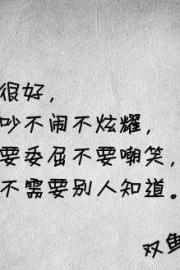 很好，
吵不闹不炫耀，
要委屈不要嘲笑，
不需要别人知道。
双鱼